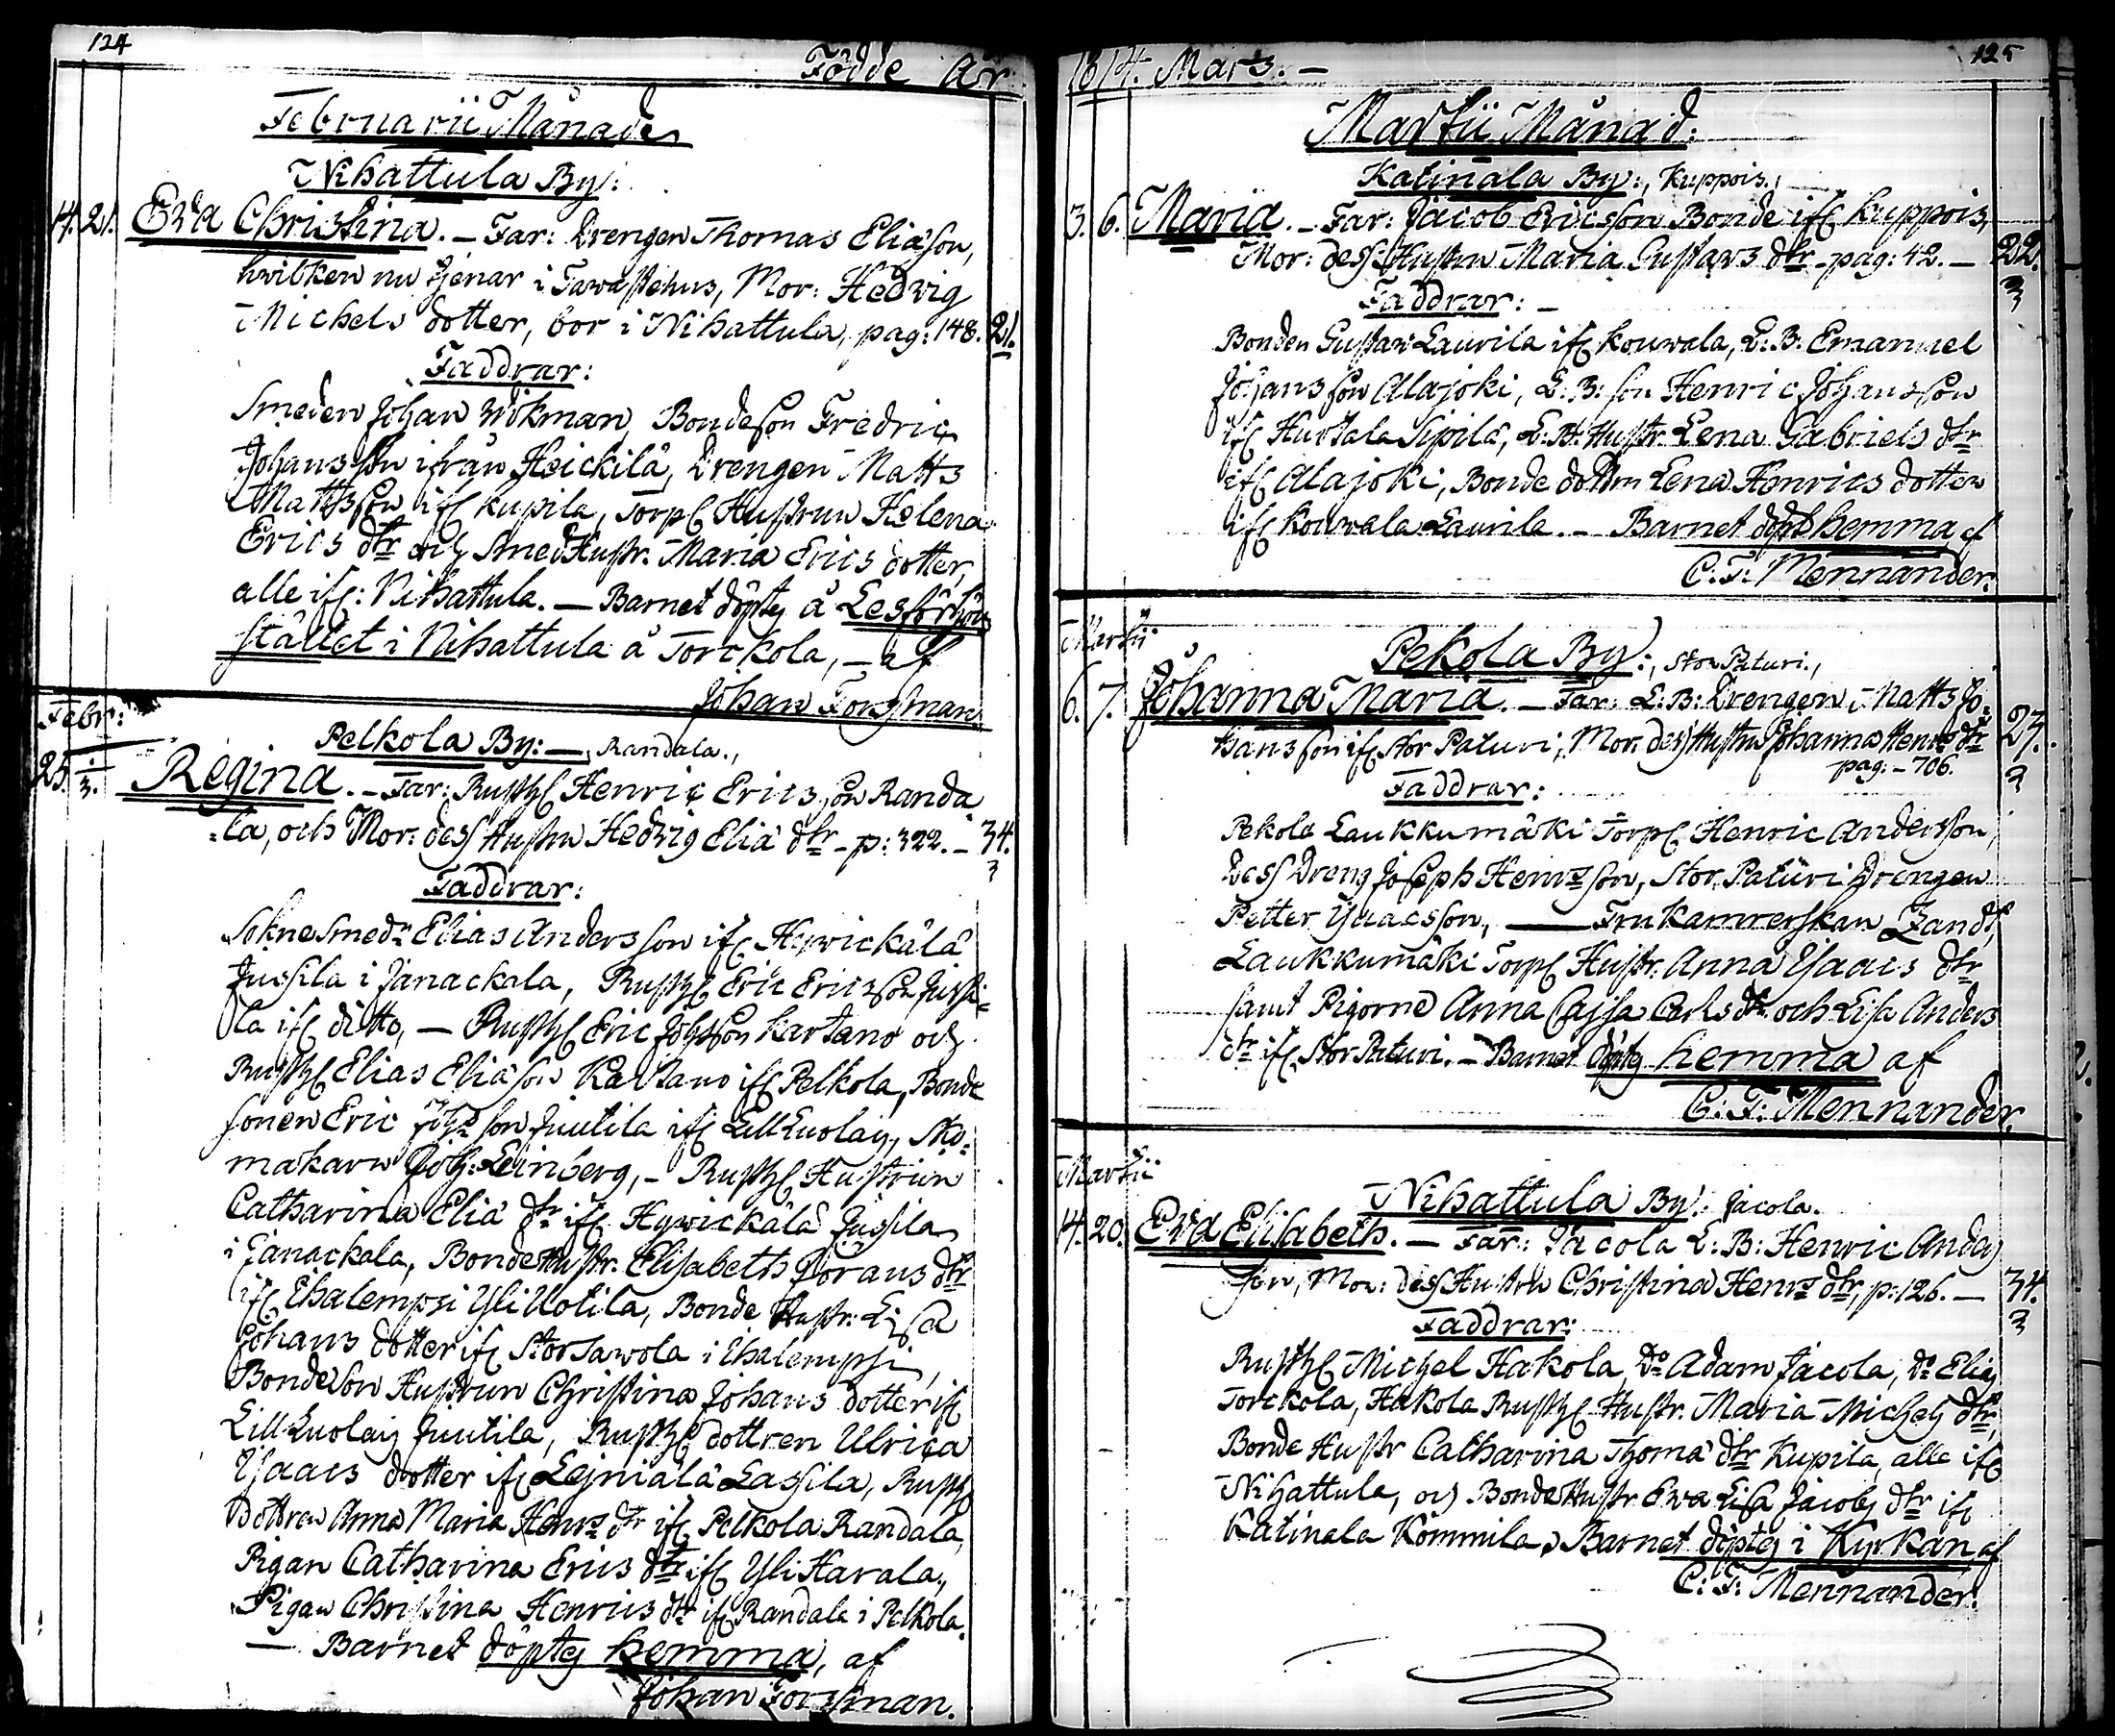 124
Födde År
Februarii Månade
Nihattula By:
14. 21. Eva Christina. – Far: Drengen Thomas Eliæson,
hvilken nu tjenar i Tawastehus, Mor: Hedvig
Michels dotter, bor i Nihattula, pag: 148. 21.
Faddrar:
Smeden Johan Wikman, Bondeson Fredric
Johansson ifrån Heickilä, Drengen Matts
Mattsson ifr Kupila, Torp. Hustrun Helena
Erics dtr och Smed Hustr. Maria Erics dotter,
alle ifr: Nihattula. — Barnet döptes å Läsförhörs
stället i Nihattula å Torckola, – af
Johan Forsman
Febr:
Pelkola By: —, Randala.,
25. 1/3. Regina. – Far: Rusth. Henric Ericsson Randa
=la, och Mor: dess Hustru Hedvig Eliæ dtr – p: 322. – 34.
3
Faddrar:
Sokne Smedn Elias Andersson ifr Hywickälä
Jussila i Janackala, Rusth. Eric Ericsson Jussi=
la ifr ditto, — Rusth. Eric Johsson Kartano och
Rusth. Elias Eliæson Kartano ifr Pelkola, Bonde
sonen Eric Johsson Juutila ifr Lill Luolaj, Sko=
makarn Joh: Leinberg, – Rusth. Hustrun
Catharina Eliæ dtr ifr Hywickälä Jussila
i Janackala, Bonde Hustr. Elisabeth Görans dtr
ifr Ihalempi Yli Uotila, Bonde Hustr: Lisa
Johans dotter ifr Stor Sawola i Ihalempi,
Bondeson Hustrun Christina Johans dotter ifr
Lill Luolaj Juutila, Rusth. dottren Ulrica
Isaacs dotter ifr Lejniälä Lassila, Rusth.
Dottren Anna Maria Henrs dtr ifr Pelkola Randala,
Pigan Catharina Erics dtr ifr Yli Harala,
Pigan Christina Henrics dtr ifr Randala i Pelkola.
— Barnet döptes hemma, af
Johan Forsman.
1814. Marts. –
125
Martii Månad:
Katinala By:, Kuppois.,
3. 6. Maria. – Far: Jacob Ericsson Bonde ifr Kuppois,
Mor: dess Hustru Maria Gustavs dtr – pag: 42. – 22.
3
Faddrar: –
Bonden Gustav Laurila ifr Kouwala, L: B: Emanuel
Johansson Alajoki, L: B: son Henric Johansson
ifr Hurtala Sipilä, L: B: Hustr. Lena Gabriels dtr
ifr Alajoki, Bonde dottern Lena Henrics dotter
ifr Kouwala Laurila. – Barnet döpt hemma af
C: F: Mennander.
Martii
Pekola By:, Stor Paturi.,
6. 7. Johanna Maria. – Far: L: B: Drengen Matts Jo= 27.
hansson ifr Stor Paturi, Mor: dess Hustru Johanna Henrs dtr
pag: – 706.
3
Faddrar:
Pekola Laukkumäki Torp. Henric Andersson,
Dess Dreng Joseph Henrsson, Stor Paturi Drengen
Petter Isaacsson, — Fru Kamrerskan Zandt,
Laukkumäki Torp. Hustr. Anna Isaacs dtr
samt Pigorne Anna Cajsa Carls dtr och Lisa Anders
dtr ifr Stor Paturi. – Barnet döptes hemma af
C: F: Mennander.
Martii
Nihattula By: Jacola.
14. 20. Eva Elisabeth. — Far: Jacola L: B: Henric Anders
son, Mor: dess Hustru Christina Henrs dtr, p: 126. — 34.
3
Faddrar:
Rusth. Michel Hakola, Do Adam Jacola, Do Elias
Torckola, Hakola Rusth. Hustr. Maria Michels dtr,
Bonde Hustr Catharina Thomæ dtr Kupila, alle ifr
Nihattula, och Bonde Hustr. Ewa Lisa Jacobs dtr ifr
Katinala Kömmilä, Barnet döptes i Kyrkan af
C: F: Mennander.